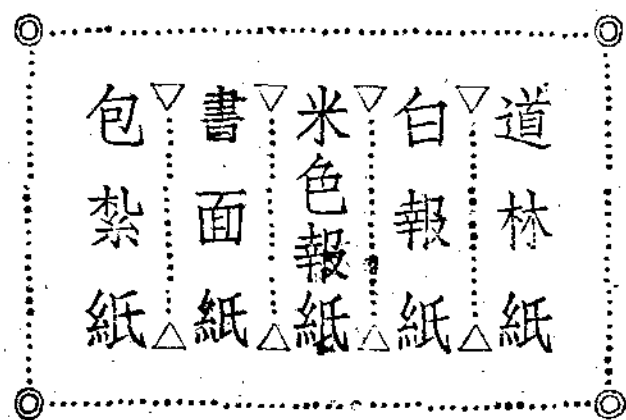 道林紙
白報紙
米色報紙
書面紙
包紮紙